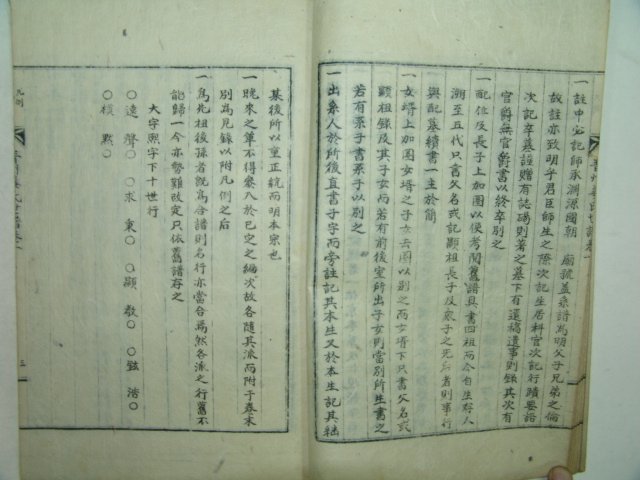 一註中必記師承淵源國朝 廟號盖系譜爲明父子兄弟之倫
故註亦致明乎君臣師生之際次記生居科官次記行蹟要語
次記卒墓謚贈有誌碣則著之墓下有還稿遺事則錄其次有
官爵無官爵書以終卒別之
一配位及長子上加圈以便考閱舊譜具書四祖而今自生存人
溯至五代只書父名或記顯祖長子及衆子之先后者則事行
與配墓續書一主於簡
一女壻上加圈女壻之子女去圈以別之而女壻下只書父名或
顯祖錄及其子女而若有前後室所出子女則當別所生書之
若有系子書系子以別之
一出系人於所後直書子字而旁註記其本生又於本生記其継
某後所以重正統而明本宗也
一晩來之單不得參入於已定之編次故各隨其派而附于卷末
別爲尾錄以附凡例之后
一烏先祖後孫者旣爲合譜則名行亦當合爲然各派之行舊不
能歸一今亦勢難改定只依舊譜存之
大字熙字下十世行
○遠 聲○ ○求 東○ ○顯 敎○ ○鉉 浩○
○模 默○
凡例
三